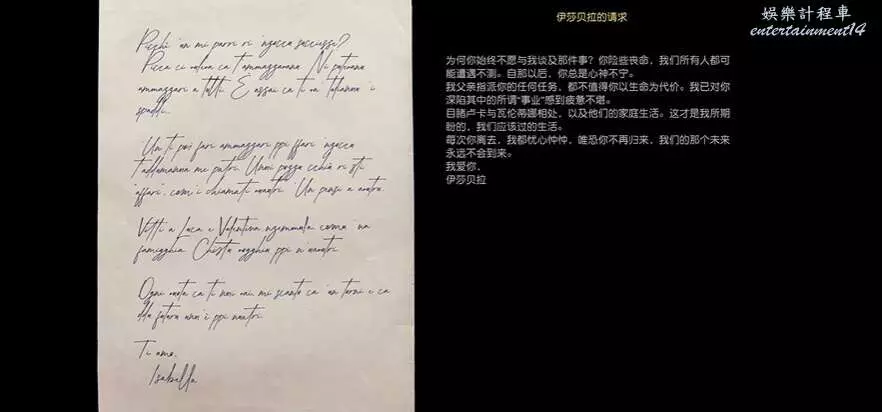 娛樂計程車
entertainment14
伊莎贝拉的请求
Picchì 'un mi parri ri 'ngocca successi?
Picca ci vulìva ca t'ammazzavanu. Ni putìvanu
ammazzari a tutti. E assai ca ti va' taliannu 'i
spaddi.
'Un ti poi fari ammazzari ppi ffari 'ngocca
t'addumanna me patri.
affari', comu i chiamati vuatri. 'Un pensi a
Vitti a Luca e Valentina comu 'na
famigghia. Chista vogghiu ppi
Ogni vota ca ti nni vai, mi scantu ca 'un torni e ca
dda futuru nun è ppi nuatri.
Ti amo,
Isabella
为何你始终不愿与我谈及那件事？你险些丧命，我们所有人都可
能遭遇不测。自那以后，你总是心神不宁。
我父亲指派你的任何任务，都不值得你以生命为代价。我已对你
深陷其中的所谓"事业"感到疲惫不堪。
目睹卢卡与瓦伦蒂娜相处，以及他们的家庭生活。这才是我所期
盼的，我们应该过的生活。
每次你离去，我都忧心忡忡，唯恐你不再归来，我们的那个未来
永远不会到来。
我爱你，
伊莎贝拉